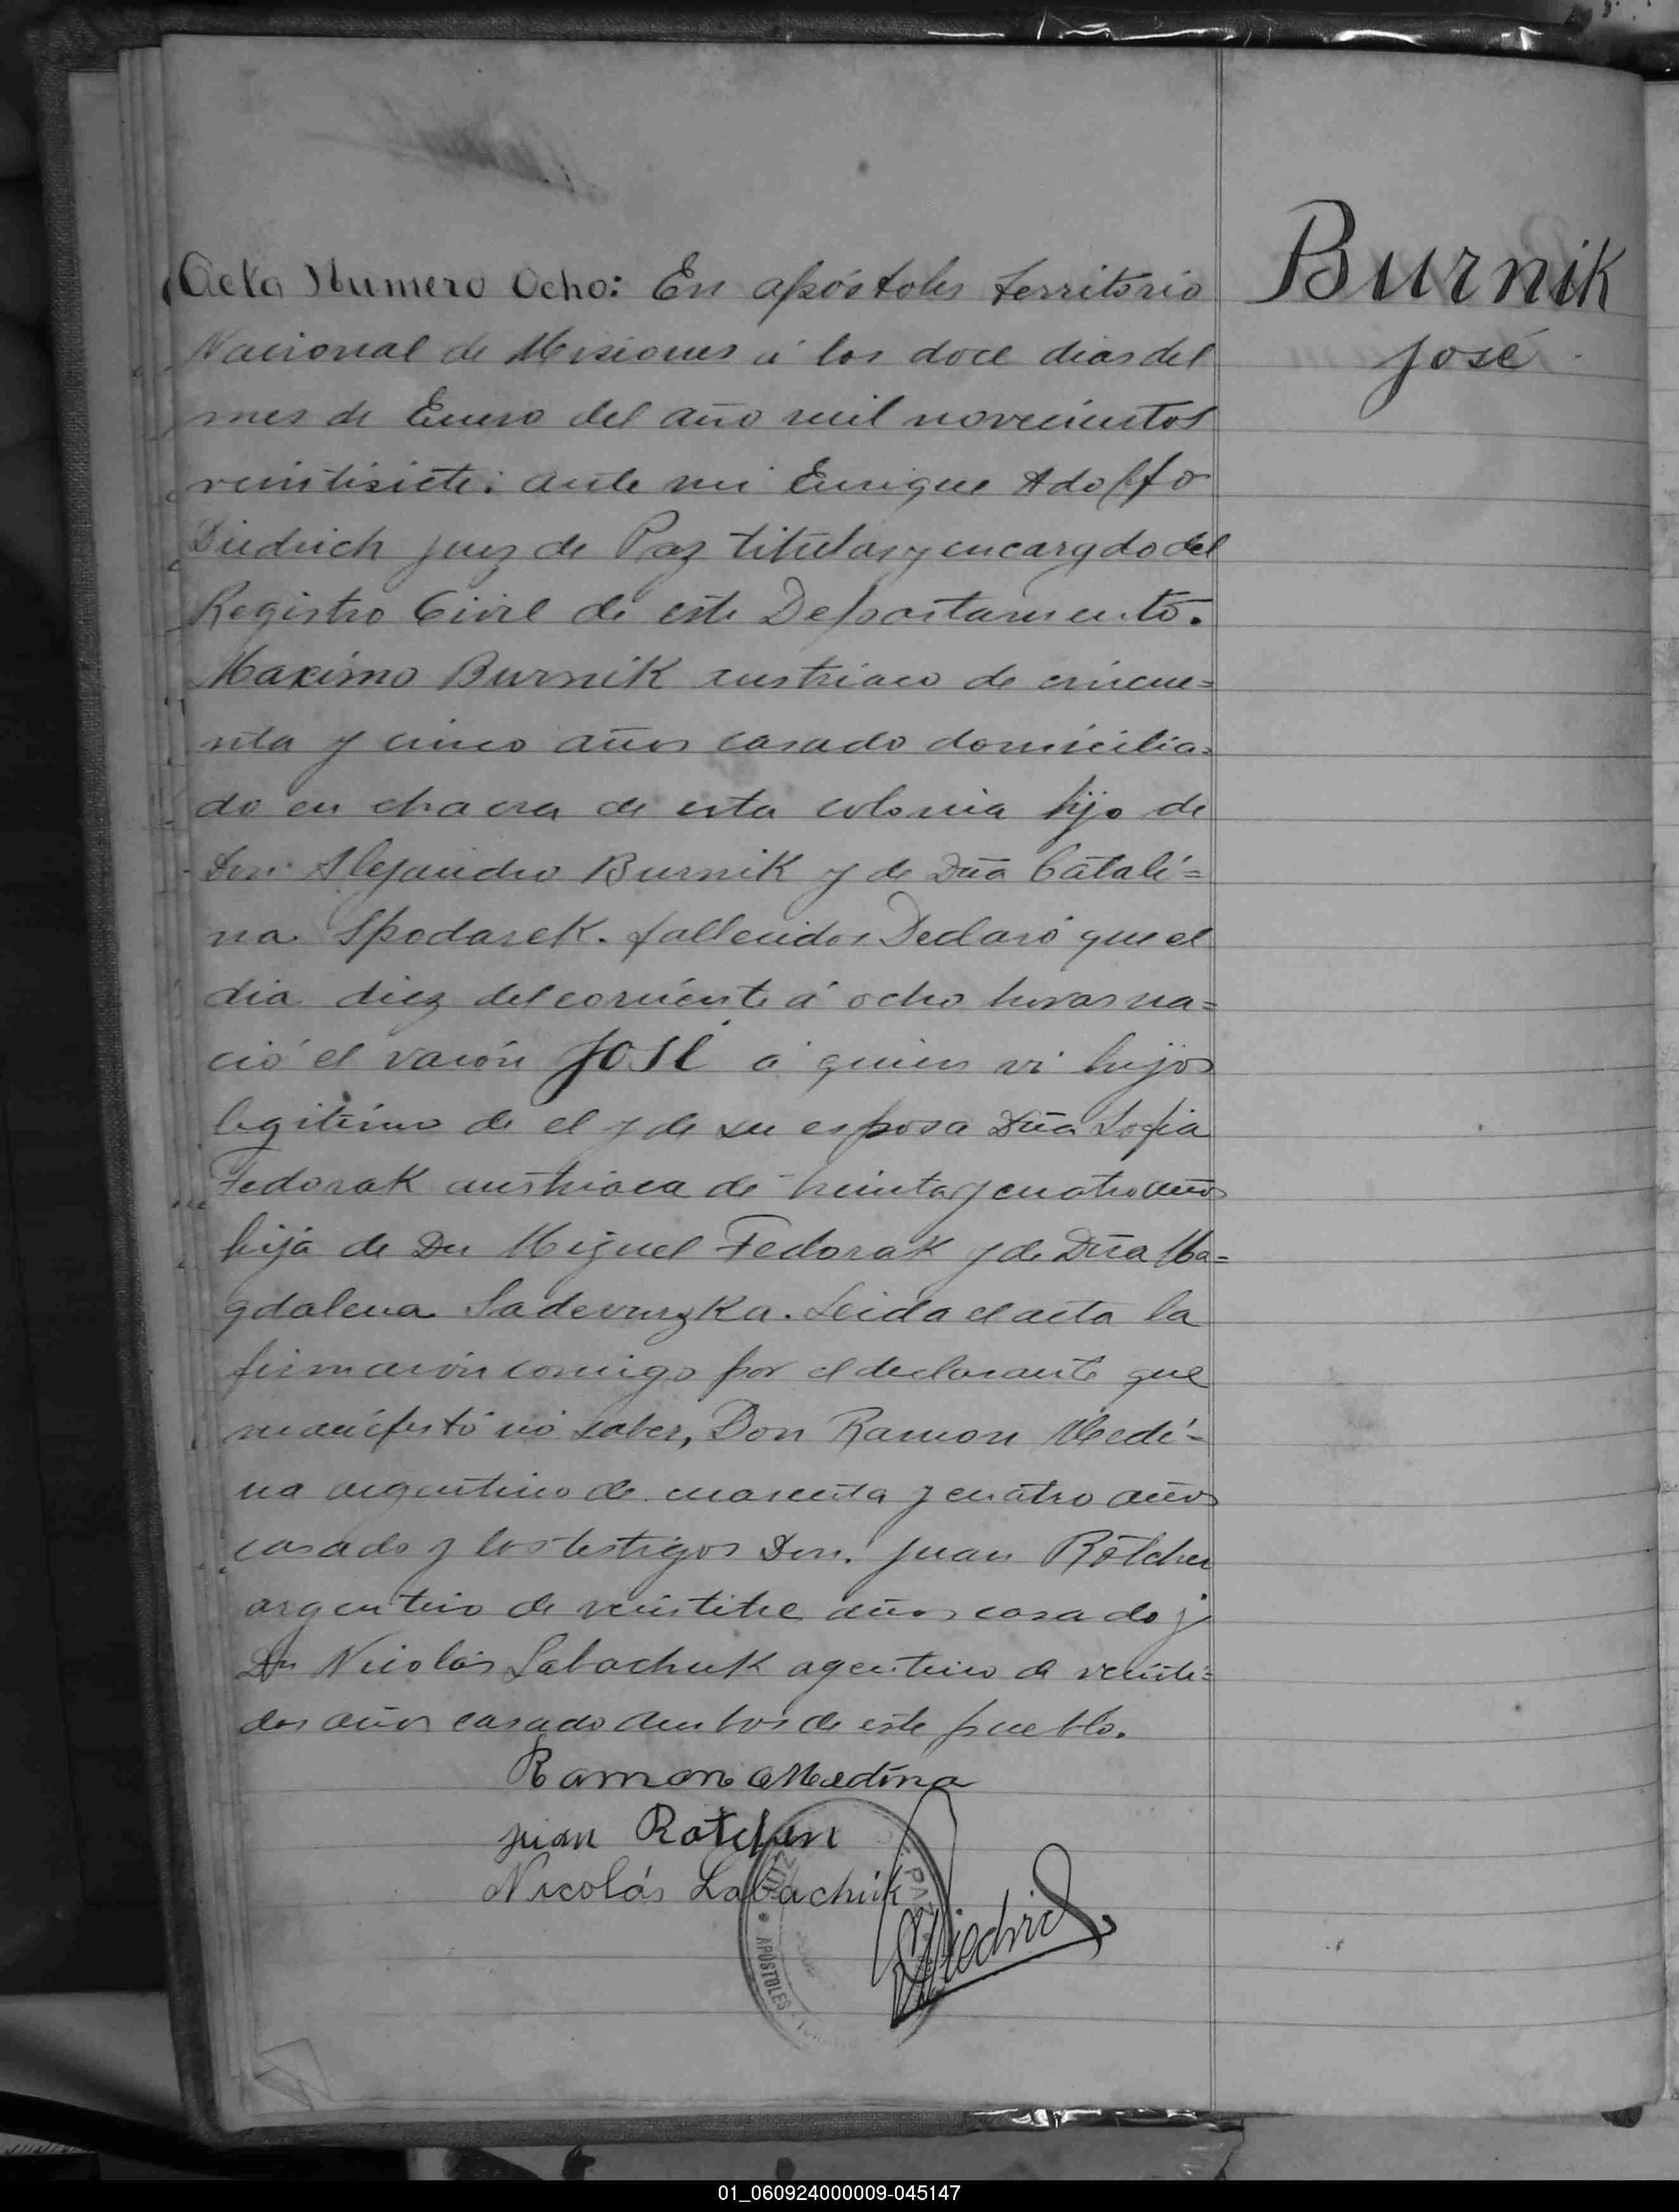 Acta Numero Ocho: En apóstoles territorio
Nacional de Misiones á los doce dias del
mes de Enero del año mil novecientos
veintisiete: ante mi Enrique Adolfo
Diedrich juez de Paz titular y encargdo del
Registro Civil de este Departamento.
Maximo Burnik austriaco de cincue=
nta y cinco años casado domicilia=
do en chacra de esta colonia hijo de
Don Alejandro Burnik y de Dña Catali=
na Spodarek. fallecidos Declaró que el
dia diez del corriente á ocho horas na=
ció el varón José á quien vi hijo
legitimo de el y de su esposa Dña Sofia
Fedorak austriaca de treinta y cuatro años
hija de Dn Miguel Fedorak y de Dña Ma=
gdalena. Leida el acta la
firmarón comigo por el declarante que
manifestó nó saber, Don Ramon Medi=
na argentino de cuarenta y cuatro años
casado y los testigos Don. Juan Rotchen
argentino de veintitre años casado y
Dn Nicolás Labachuk agentino de veinti=
dos años casado ambos de este pueblo.
Ramon Medina
Juan Rotchen
Nicolás Labachuk
Diedrich
JUZ DE PAZ
APÓSTOLES
Burnik
José
01_060924000009-045147